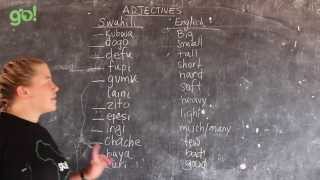 go!
ADJECTIVES
Swahili English
__kubwa Big
__dogo Small
__defu tall
__fupi short
__gumu hard
laini soft
__zito heavy
__epesi light
__ingi much/many
__chache few
baya bad
good